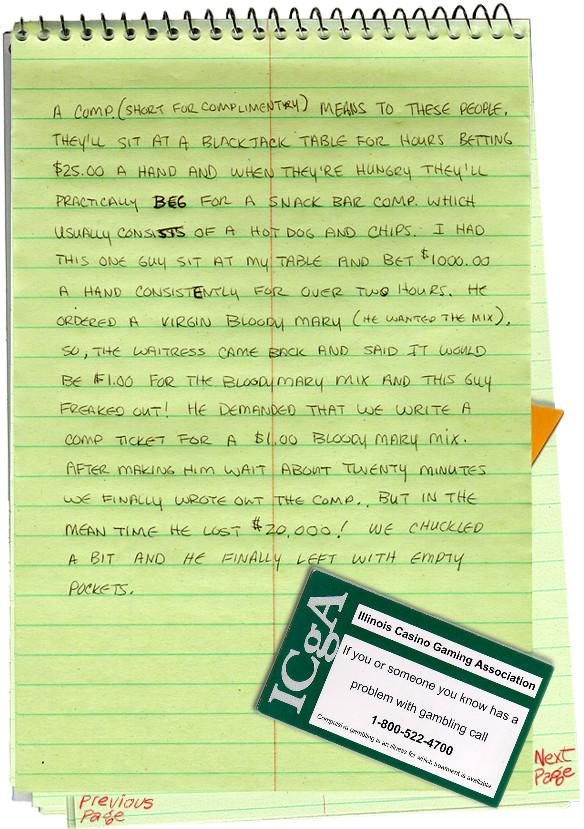 A COMP. (SHORT FOR COMPLIMENTRY) MEANS TO THESE PEOPLE.
THEY'LL SIT AT A BLACKJACK TABLE FOR HOURS BETTING
$25.00 A HAND AND WHEN THEY'RE HUNGRY THEY'LL
PRACTICALLY BEG FOR A SNACK BAR COMP. WHICH
USUALLY CONSISTS OF A HOT DOG AND CHIPS. I HAD
THIS ONE GUY SIT AT MY TABLE AND BET $1000.00
A HAND CONSISTENTLY FOR OVER TWO HOURS. HE
ORDERED A VIRGIN BLOODY MARY (HE WANTED THE MIX).
SO, THE WAITRESS CAME BACK AND SAID IT WOULD
BE $1.00 FOR THE BLOODY MARY MIX AND THIS GUY
FREAKED OUT! HE DEMANDED THAT WE WRITE A
COMP TICKET FOR A $1.00 BLOODY MARY MIX.
AFTER MAKING HIM WAIT ABOUT TWENTY MINUTES
WE FINALLY WROTE OUT THE COMP.. BUT IN THE
MEAN TIME HE LOST $20,000! WE CHUCKLED
A BIT AND HE FINALLY LEFT WITH EMPTY
POCKETS.
ICgA
Illinois Casino Gaming Association
If you or someone you know has a
problem with gambling call
1-800-522-4700
Compulsive gambling is an illness for which treatment is available
Next
Page
Previous
Page